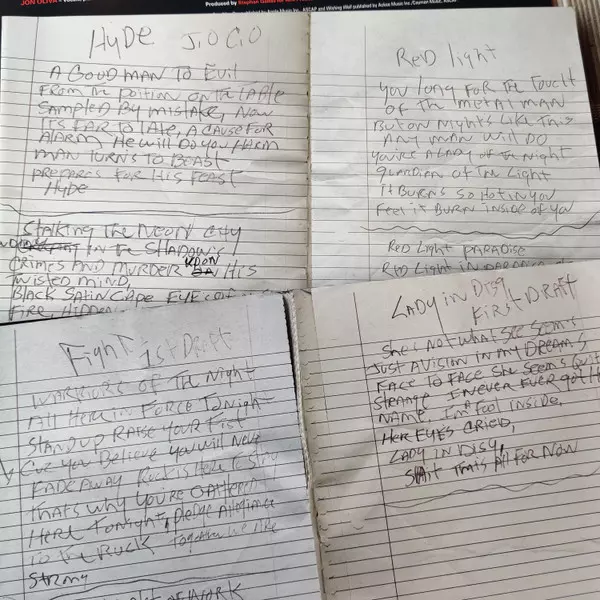 JON OLIVA
Produced by
HyDE J.O C.O
A GOOD MAN TO EviL
FROM THE POtiON ON THE TABLE
SAMPLED BY MISTAKE, NOW
ITS FAR TO LATE, A CAUSE FOR
ALARM HE WILL DO YOU HARM
MAN TURNS TO BEAST
PREPARES FOR HIS FEAST
HYDE
STALKING THE NEON CITY
IN THE SHADOWS
CRIMES AND MURDER UPON HIS
TWISTED MIND,
BLACK SATIN CAPE EYES OF
FIRE HIDDEN
RED light
you long FOR THE Touch
OF THE METAL MAN
BUT ON NIGHTS LIKE THIS
ANY MAN WILL DO
you're A LADY OF THE NIGHT
guARDiAN OF THE LIGHT
IT BURNS SO HOT IN YOU
FEEL iT BURN INSIDE OF YOU
RED LIGHT PARADISE
RED LIGHT IN PARADISE
FIGHT 1st DRAFT
WARRIORS OF THE NIGHT
All HERE IN FORCE TONIGHT
STAND UP RAISE YOUR FIST
BELIEVE YOU WILL NEVE
FADE AWAY Rock is HERE TO STAY
THAT'S WHY YOU'RE GATHERED
HERE TONIGHT, PLEDGE
TO THE ROCK TOGETHER WE
STRONG
OF WORK
LADY IN DISG
FIRST DRAFT
SHE'S NOT WHAT SEE SEEMS
JUST A VISION IN MY DREAMS
FACE TO FACE SHE SEEMS
STRANGE I NEVER EVER got
NAME, I'M A FOOL INSIDE,
HER EYES CRIED,
LADY IN DISY,
THATS ALL FOR NOW